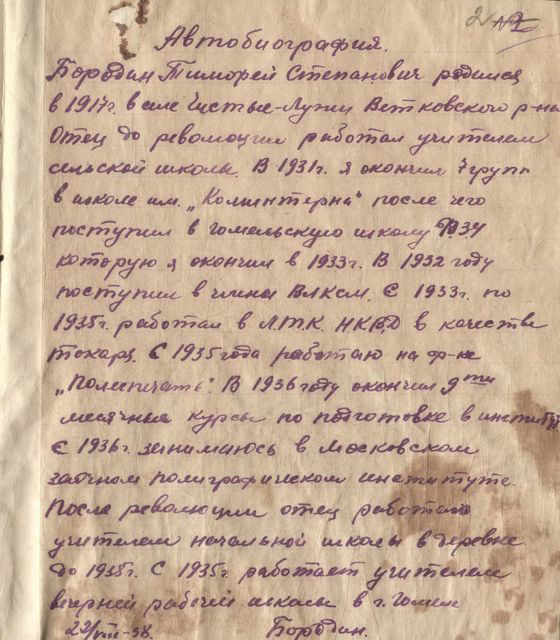 2
Автобиография.
Бородин Тимофей Степанович родился
в 1917г. в селе Чистые-Лужи Ветковского р-на
Отец до революции работал учителем
сельской школы. В 1931г. я окончил 7 групп
в школе им. „Коминтерна" после чего
поступил в гомельскую школу ФЗУ
которую я окончил в 1933г. В 1932 году
поступил в члены ВЛКСМ. С 1933г. по
1935г. работал в Л.Т.К. НКВД в качестве
токаря. С 1935 года работаю на ф-ке
„Полеспечать". В 1936 году окончил 9ти
месячные курсы по подготовке в институт
С 1936г. занимаюсь в Московском
заочном полиграфическом институте.
После революции отец работал
учителем начальной школы в деревне
до 1935г. С 1935г. работает учителем
вечерней рабочей школы в г. Гомеле
22/VIII-38. Бородин.